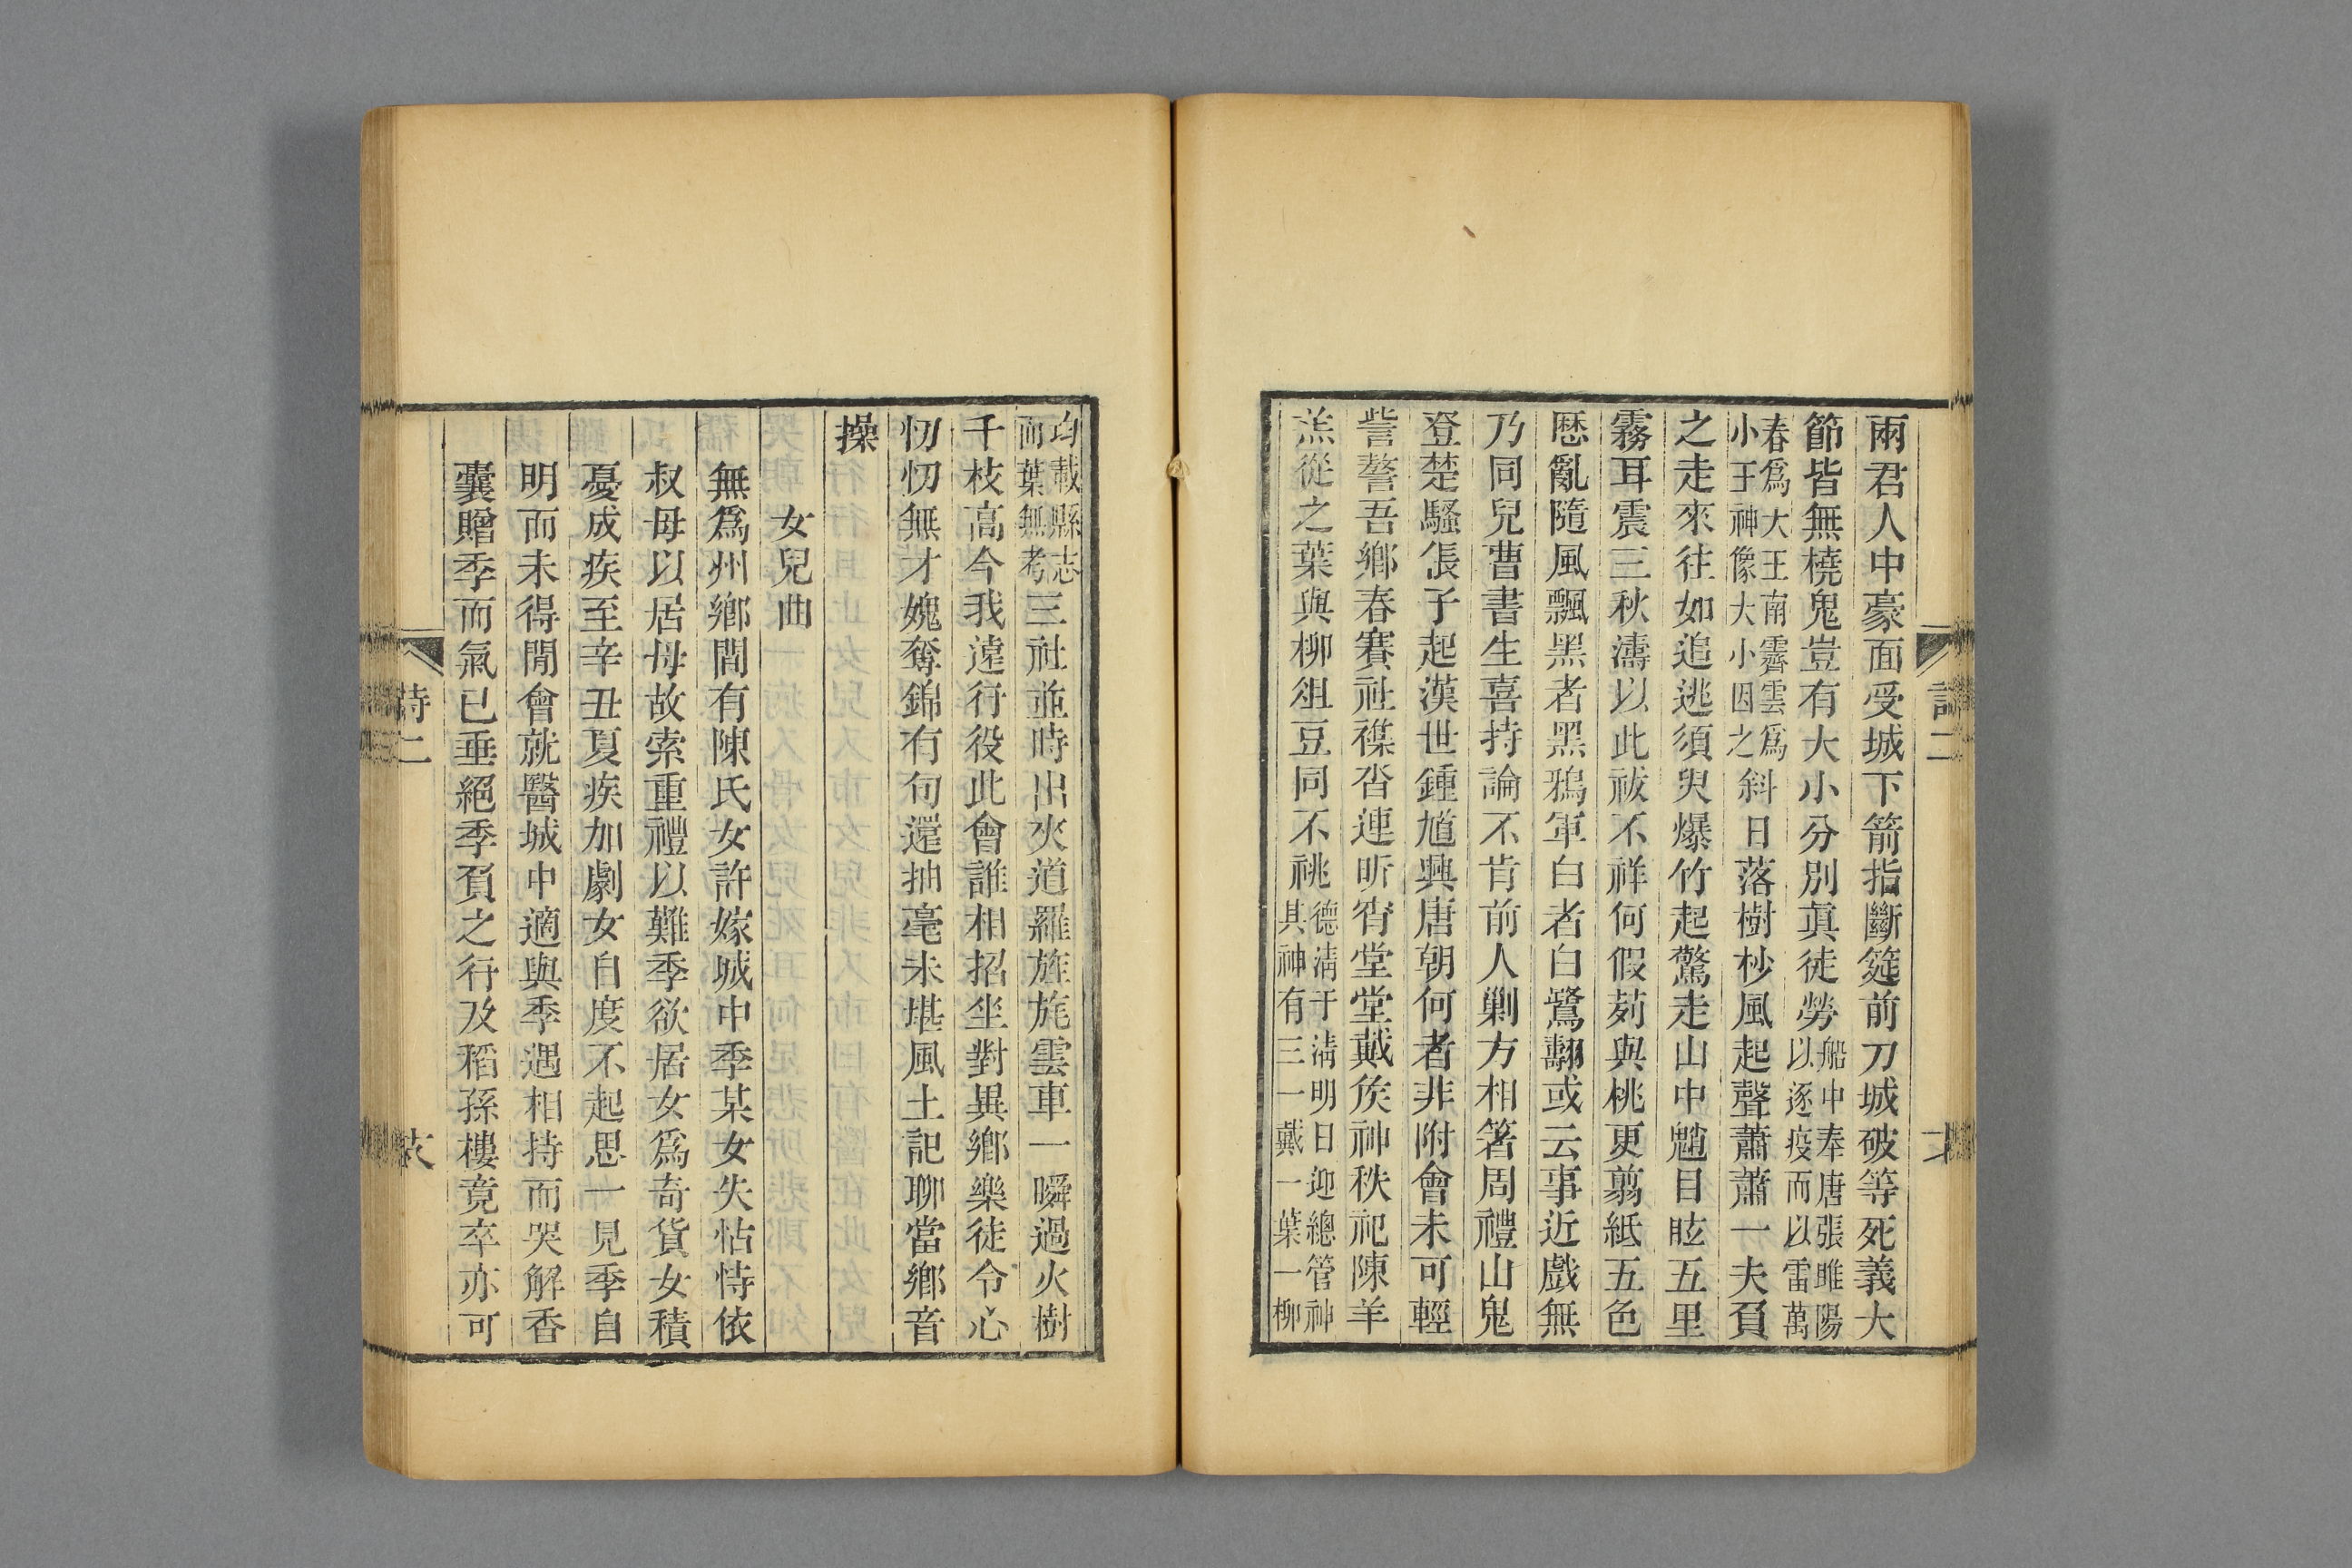 兩君人中豪面受城下箭指斷筵前刀城破等死義大
節皆無橈鬼豈有大小分別眞徒勞船中奉唐張睢陽以逐疫而以雷萬
春爲大王南霽雲爲小王神像大小因之斜日落樹杪風起聲蕭蕭一夫負
之走來往如追逃須臾爆竹起驚走山中魈目眩五里
霧耳震三秋濤以此祓不祥何假茢與桃更翦紙五色
歷亂隨風飄黑者黑鴉軍白者白鷺翿或云事近戲無
乃同兒曹書生喜持論不肯前人剿方相箸周禮山鬼
登楚騷倀子起漢世鍾馗興唐朝何者非附會未可輕
訾謷吾鄉春賽社襍沓連昕宵堂堂戴矦神秩祀陳羊
羔從之葉與柳俎豆同不祧德淸于淸明日迎總管神其神有三一戴一葉一柳
均載縣志而葉無考三社並時出夾道羅旌旄雲車一瞬過火樹
千枝高今我遠行役此會誰相招坐對異鄉樂徒令心
忉忉無才媿奪錦有句還抽毫未堪風土記聊當鄉音
操
女兒曲
無爲州鄉間有陳氏女許嫁城中季某女失怙恃依
叔母以居母故索重禮以難季欲居女爲奇貨女積
憂成疾至辛丑夏疾加劇女自度不起思一見季自
明而未得閒會就醫城中適與季遇相持而哭解香
囊贈季而氣已垂絕季負之行及稻孫樓竟卒亦可
詩二